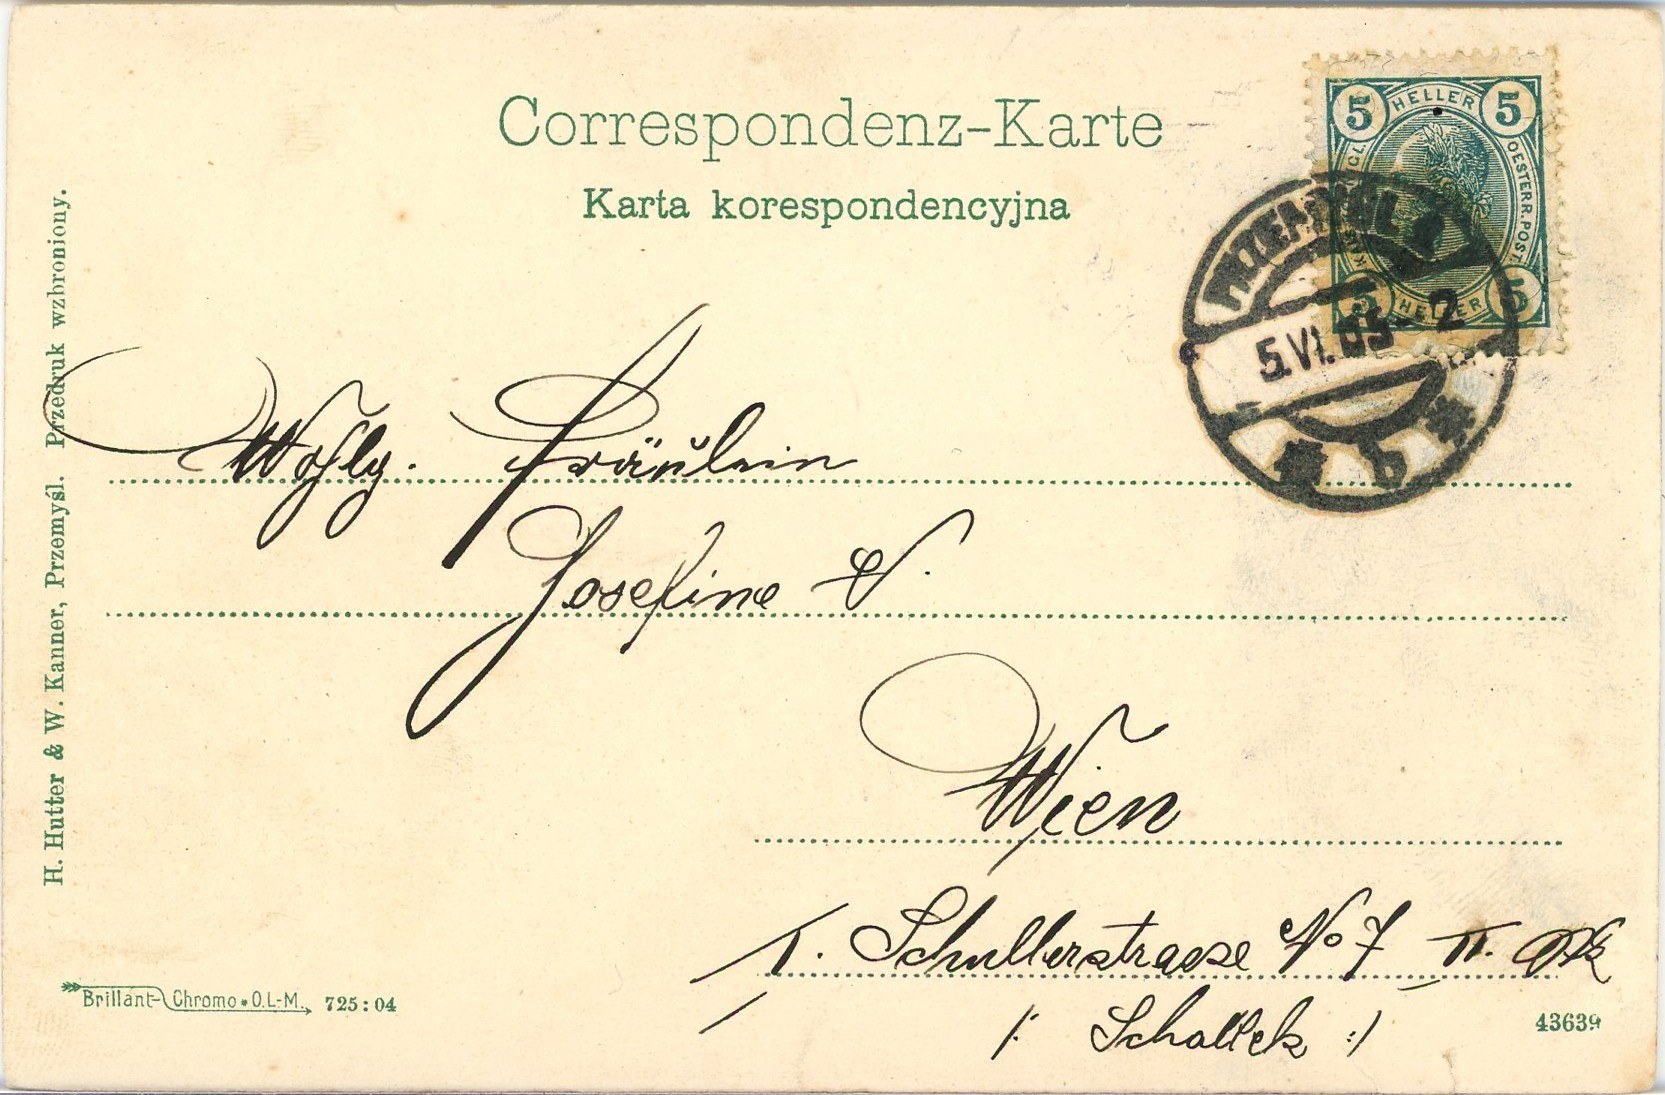 Correspondenz-Karte
Karta korespondencyjna
5 HELLER 5
OESTERR. POST
5 HELLER 5
PRZEMYŚL 1
5.VI.05- 2
b
Wohlg. Fräulein
Josefine V.
Wien
I. Schullerstrasse No 7 II. Stk
/: Schallek :/
H. Hutter & W. Kanner, Przemyśl. Przedruk wzbroniony.
Brillant-Chromo * O.L-M. 725:04
43639